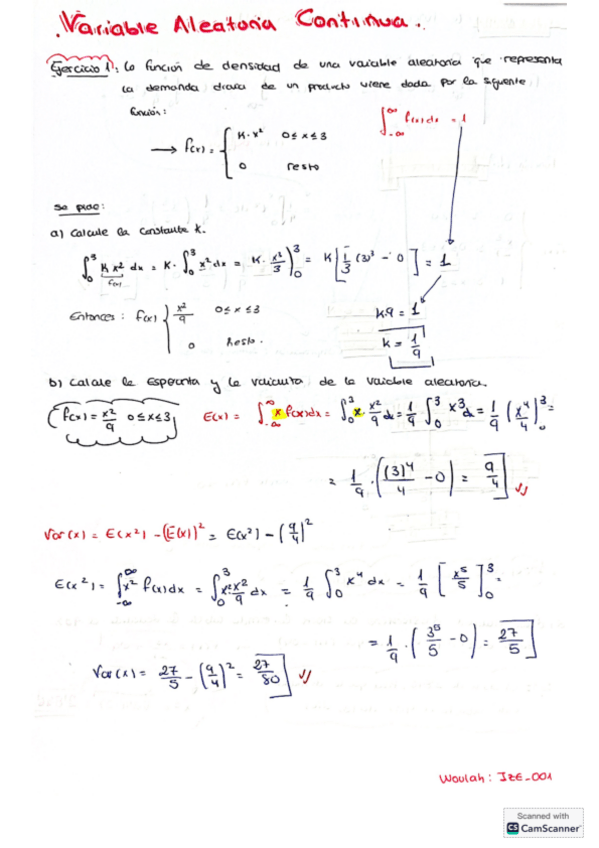 . Variable Aleatoria Continua .
Ejercicio 1: La función de densidad de una variable aleatoria que representa
la demanda diaria de un producto viene dada por la siguiente
función:
∫_{-∞}^{∞} f(x)dx = 1
→ f(x) = { K·x² 0≤x≤3
0 resto
Se pide:
a) Calcule la constante K.
∫₀³ K x² dx = K·∫₀³ x² dx = K·x³/3 )₀³ = K[1/3 (3)³ - 0] = 1
f(x)
Entonces: f(x) { x²/9 0≤x≤3
0 Resto.
K9 = 1
K = 1/9
b) Calcule la Esperanza y la varianza de la variable aleatoria.
f(x) = x²/9 0≤x≤3
E(x) = ∫_{-∞}^{∞} x f(x)dx = ∫₀³ x·x²/9 dx = 1/9 ∫₀³ x³ dx = 1/9 (x⁴/4]₀³ =
= 1/9 · ((3)⁴/4 - 0) = 9/4]
Var(x) = E(x²) - (E(x))² = E(x²) - (9/4)²
E(x²) = ∫_{-∞}^{∞} x² f(x)dx = ∫₀³ x²·x²/9 dx = 1/9 ∫₀³ x⁴ dx = 1/9 [x⁵/5]₀³ =
= 1/9 · (3⁵/5 - 0) = 27/5]
Var(x) = 27/5 - (9/4)² = 27/80]
Woulah: IZE_001
Scanned with
CS CamScanner